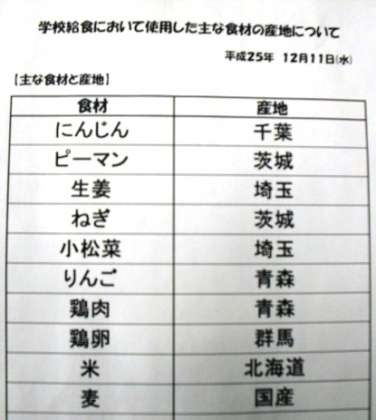 学校給食において使用した主な食材の産地について
平成25年 12月11日(水)
【主な食材と産地】
食材 産地
にんじん 千葉
ピーマン 茨城
生姜 埼玉
ねぎ 茨城
小松菜 埼玉
りんご 青森
鶏肉 青森
鶏卵 群馬
米 北海道
麦 国産